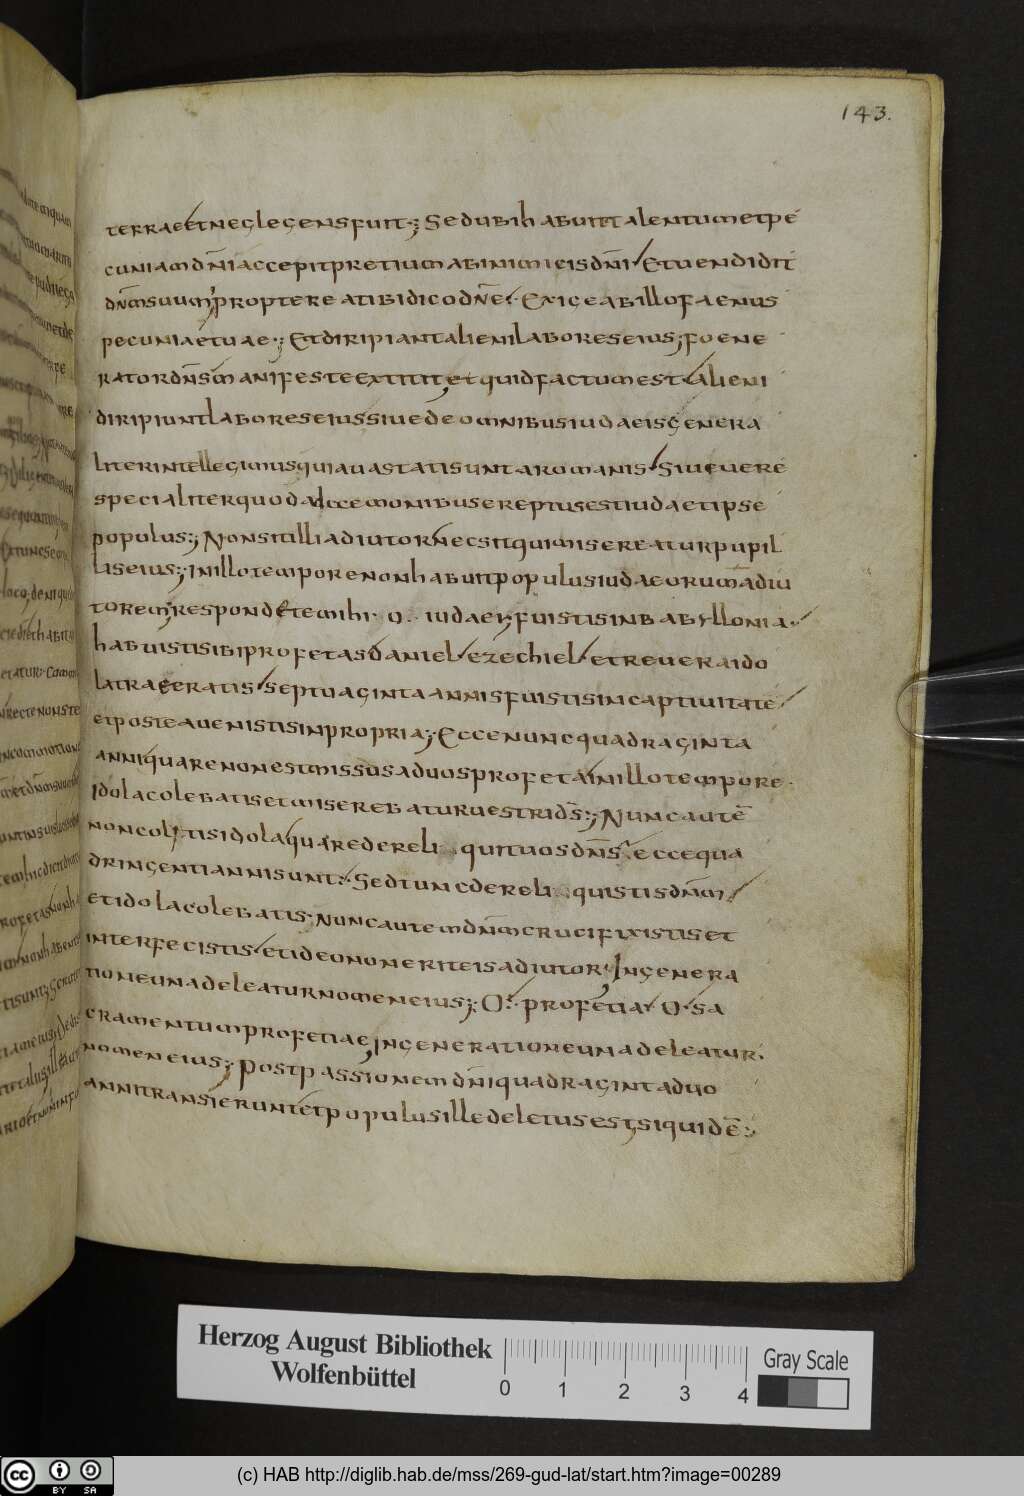 143.
terrae et neglegens fuit·; Sed ubi habuit talentum et pe
cuniam dn̄i accepit pretium ab inimicis dn̄i/ Et uendidit
dn̄m suum; propterea tibi dico dn̄e· Exige ab illo faenus
pecuniae tuae·; Et diripiant alieni labores eius; foene
rator dn̄s manifeste extitit, et quid factum est/ alieni
diripiunt labores eius siue de omnibus iudaeis genera
liter intellegimus qui auastati sunt a romanis/ Siue uere
specialiter quod a daemonibus ereptus est iudaet ipse
populus·; Non sit illi adiutor nec sit qui misereatur pupil
lis eius·; in illo tempore non habuit populus iudaeorum adiu
torem; respondete mihi· O· iudaei; fuistis in babyllonia·/
habuistis ibi profetas daniel/ ezechiel/ et reuera ido
latrae eratis/ septuaginta annis fuistis in captiuitate/
et postea uenistis in propria·; Ecce nunc quadraginta
anni quare non est missus ad uos profeta in illo tempore·
idola colebatis et miserebatur uestri ds̄·; Nunc autē
non colitis idola quare dereliquit uos dn̄s· ecce qua
dringenti anni sunt·. Sed tunc dereliquistis dn̄m/
et idola colebatis· nunc autem dn̄m crucifixistis et
interfecistis/ et ideo non erit eis adiutor· In genera
tione una deleatur nomen eius·; O· profetia/ O· sa
cramentum profetiae, in generatione una deleatur·
nomen eius·; Post passionem dn̄i quadraginta duo
anni transierunt et populus ille deletus est; siquidē·;
Herzog August Bibliothek
Wolfenbüttel
0 1 2 3 4
Gray Scale
cc BY SA
(c) HAB http://diglib.hab.de/mss/269-gud-lat/start.htm?image=00289